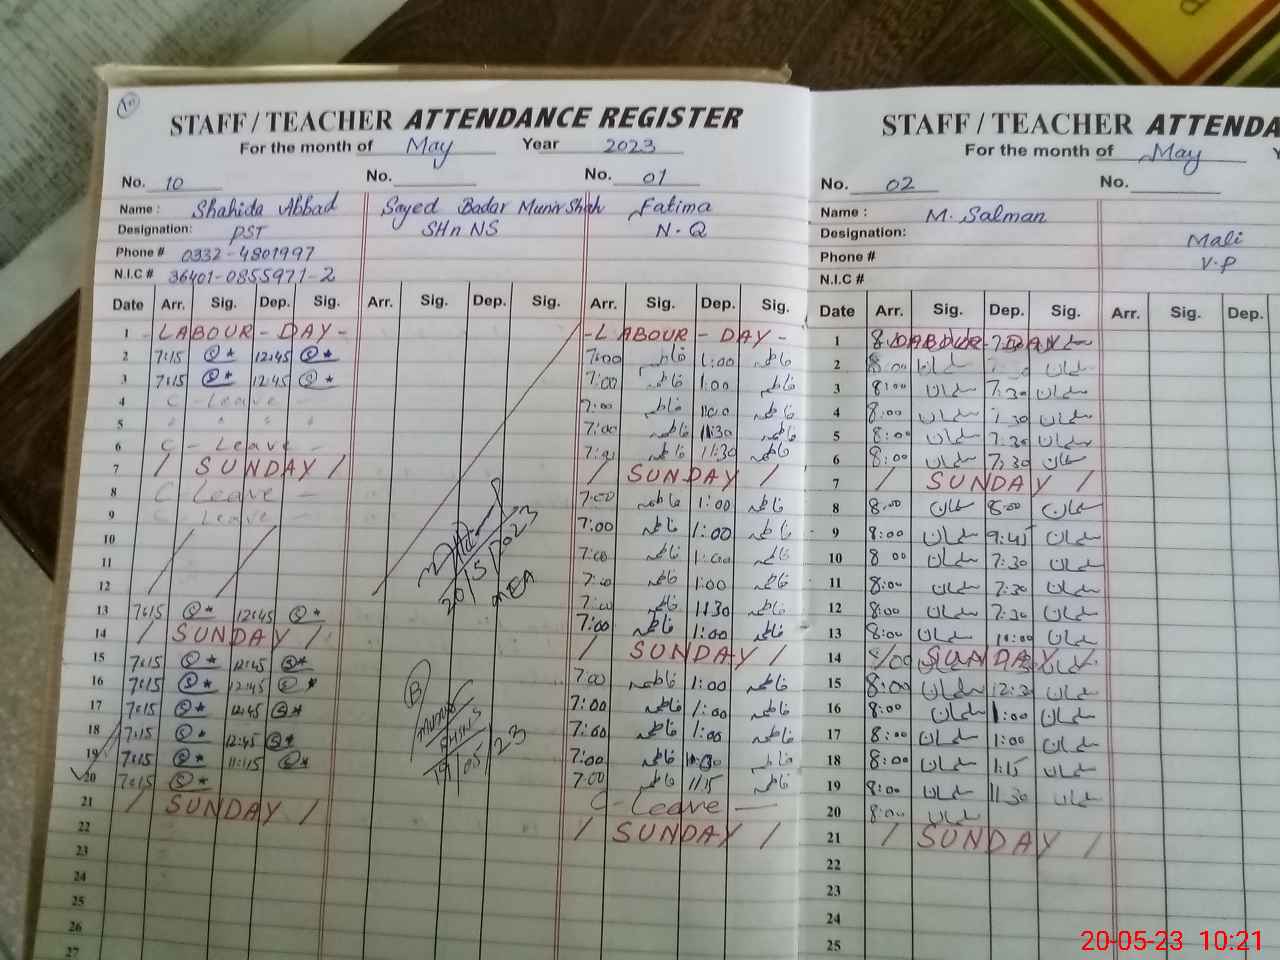 STAFF / TEACHER ATTENDANCE REGISTER
For the month of May Year 2023
No. 10 No. No. 01
Name : Shahida Abbad Sayed Badar Munir Shah Fatima
Designation: PST SHn NS N-Q
Phone # 0332-4801997
N.I.C # 36401-0855971-2
Date Arr. Sig. Dep. Sig. Arr. Sig. Dep. Sig. Arr. Sig. Dep. Sig.
1 - LABOUR - DAY - - LABOUR - DAY -
2 7:15 12:45 7:00 فاطمہ 1:00 فاطمہ
3 7:15 12:45 7:00 فاطمہ 1:00 فاطمہ
4 C - Leave - 7:00 فاطمہ فاطمہ
5 " " " 7:00 فاطمہ 11:30 فاطمہ
6 C - Leave - فاطمہ 11:30 فاطمہ
7 / SUNDAY / / SUNDAY /
8 C Leave - 7:00 فاطمہ 1:00 فاطمہ
9 C - Leave 7:00 فاطمہ 1:00 فاطمہ
10 7:00 فاطمہ 1:00 فاطمہ
11 7:00 فاطمہ 1:00 فاطمہ
12 7:00 فاطمہ 11:30 فاطمہ
13 7:15 12:45 7:00 فاطمہ 1:00 فاطمہ
14 / SUNDAY / / SUNDAY /
15 7:15 12:45 7:00 فاطمہ 1:00 فاطمہ
16 7:15 12:45 7:00 فاطمہ 1:00 فاطمہ
17 7:15 12:45 7:00 فاطمہ 1:00 فاطمہ
18 7:15 12:45 7:00 فاطمہ فاطمہ
19 7:15 11:15 7:00 فاطمہ 11:15 فاطمہ
20 7:15 C - Leave -
21 / SUNDAY / / SUNDAY /
22
23
24
25
26
27
20/5/2023
MEA
B
19/05/23
STAFF / TEACHER ATTENDA
For the month of May Y
No. 02 No.
Name : M. Salman
Designation: Mali
Phone # V.P
N.I.C #
Date Arr. Sig. Dep. Sig. Arr. Sig. Dep.
1 LABOUR DAY
2 8:00 سلمان سلمان
3 8:00 سلمان 7:30 سلمان
4 8:00 سلمان 7:30 سلمان
5 8:00 سلمان 7:30 سلمان
6 8:00 سلمان 7:30 سلمان
7 / SUNDAY /
8 8:00 سلمان 8:00 سلمان
9 8:00 سلمان 9:45 سلمان
10 8:00 سلمان 7:30 سلمان
11 8:00 سلمان 7:30 سلمان
12 8:00 سلمان 7:30 سلمان
13 8:00 سلمان 10:00 سلمان
14 SUNDAY
15 8:00 سلمان سلمان
16 8:00 سلمان 1:00 سلمان
17 8:00 سلمان 1:00 سلمان
18 8:00 سلمان 1:15 سلمان
19 8:00 سلمان 11:30 سلمان
20 8:00 سلمان
21 / SUNDAY /
22
23
24
25
20-05-23 10:21